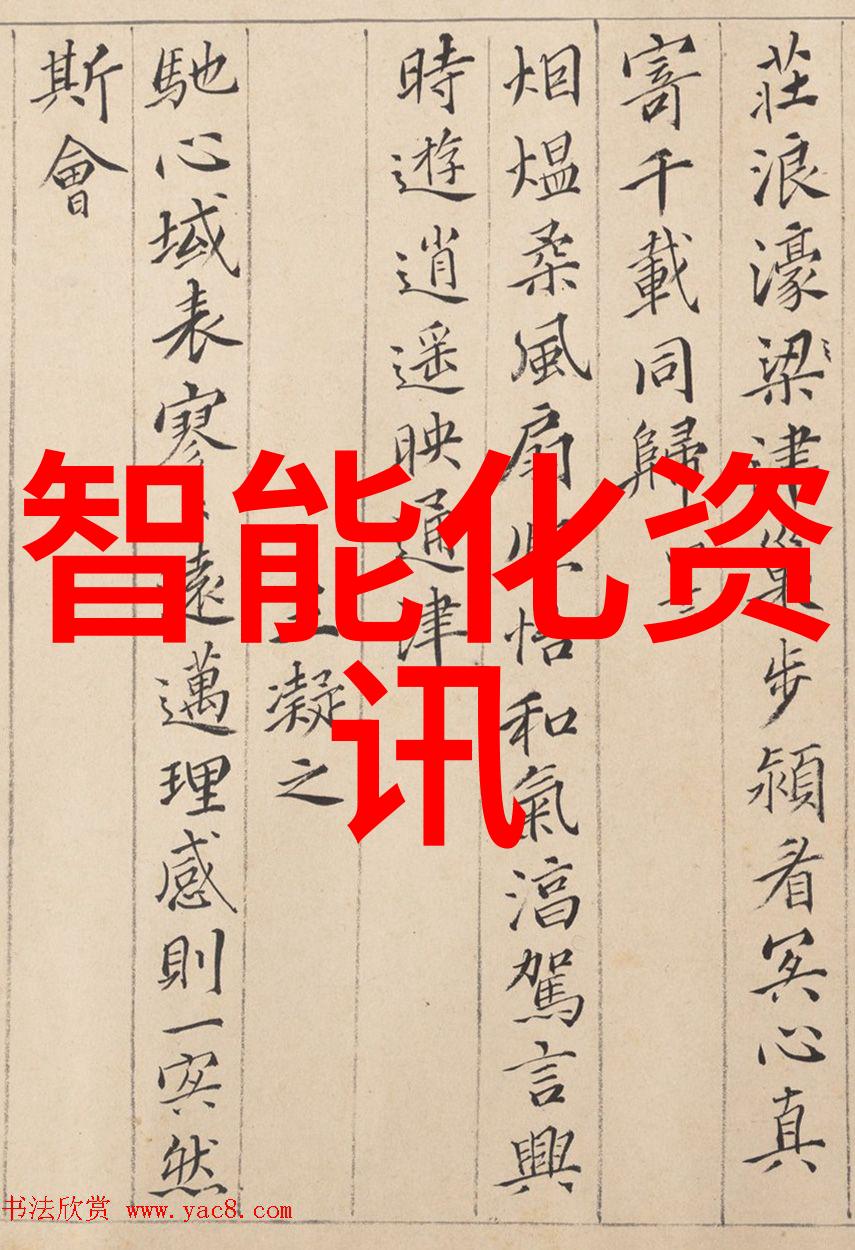 莊浪濠梁津巢步潁看冥心真
寄千載同歸
烟熅柔風扇熙怡和氣湻駕言興
時遊逍遥映通津
王凝之
馳心域表寥〻遠邁理感則一冥然
斯會
智能化资
讯
书法欣赏 www.yac8.com